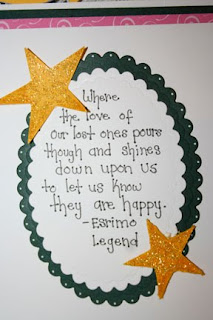 Where
the love of
our lost ones pours
though and shines
down upon us
to let us know
they are happy.
-Esrimo
Legend